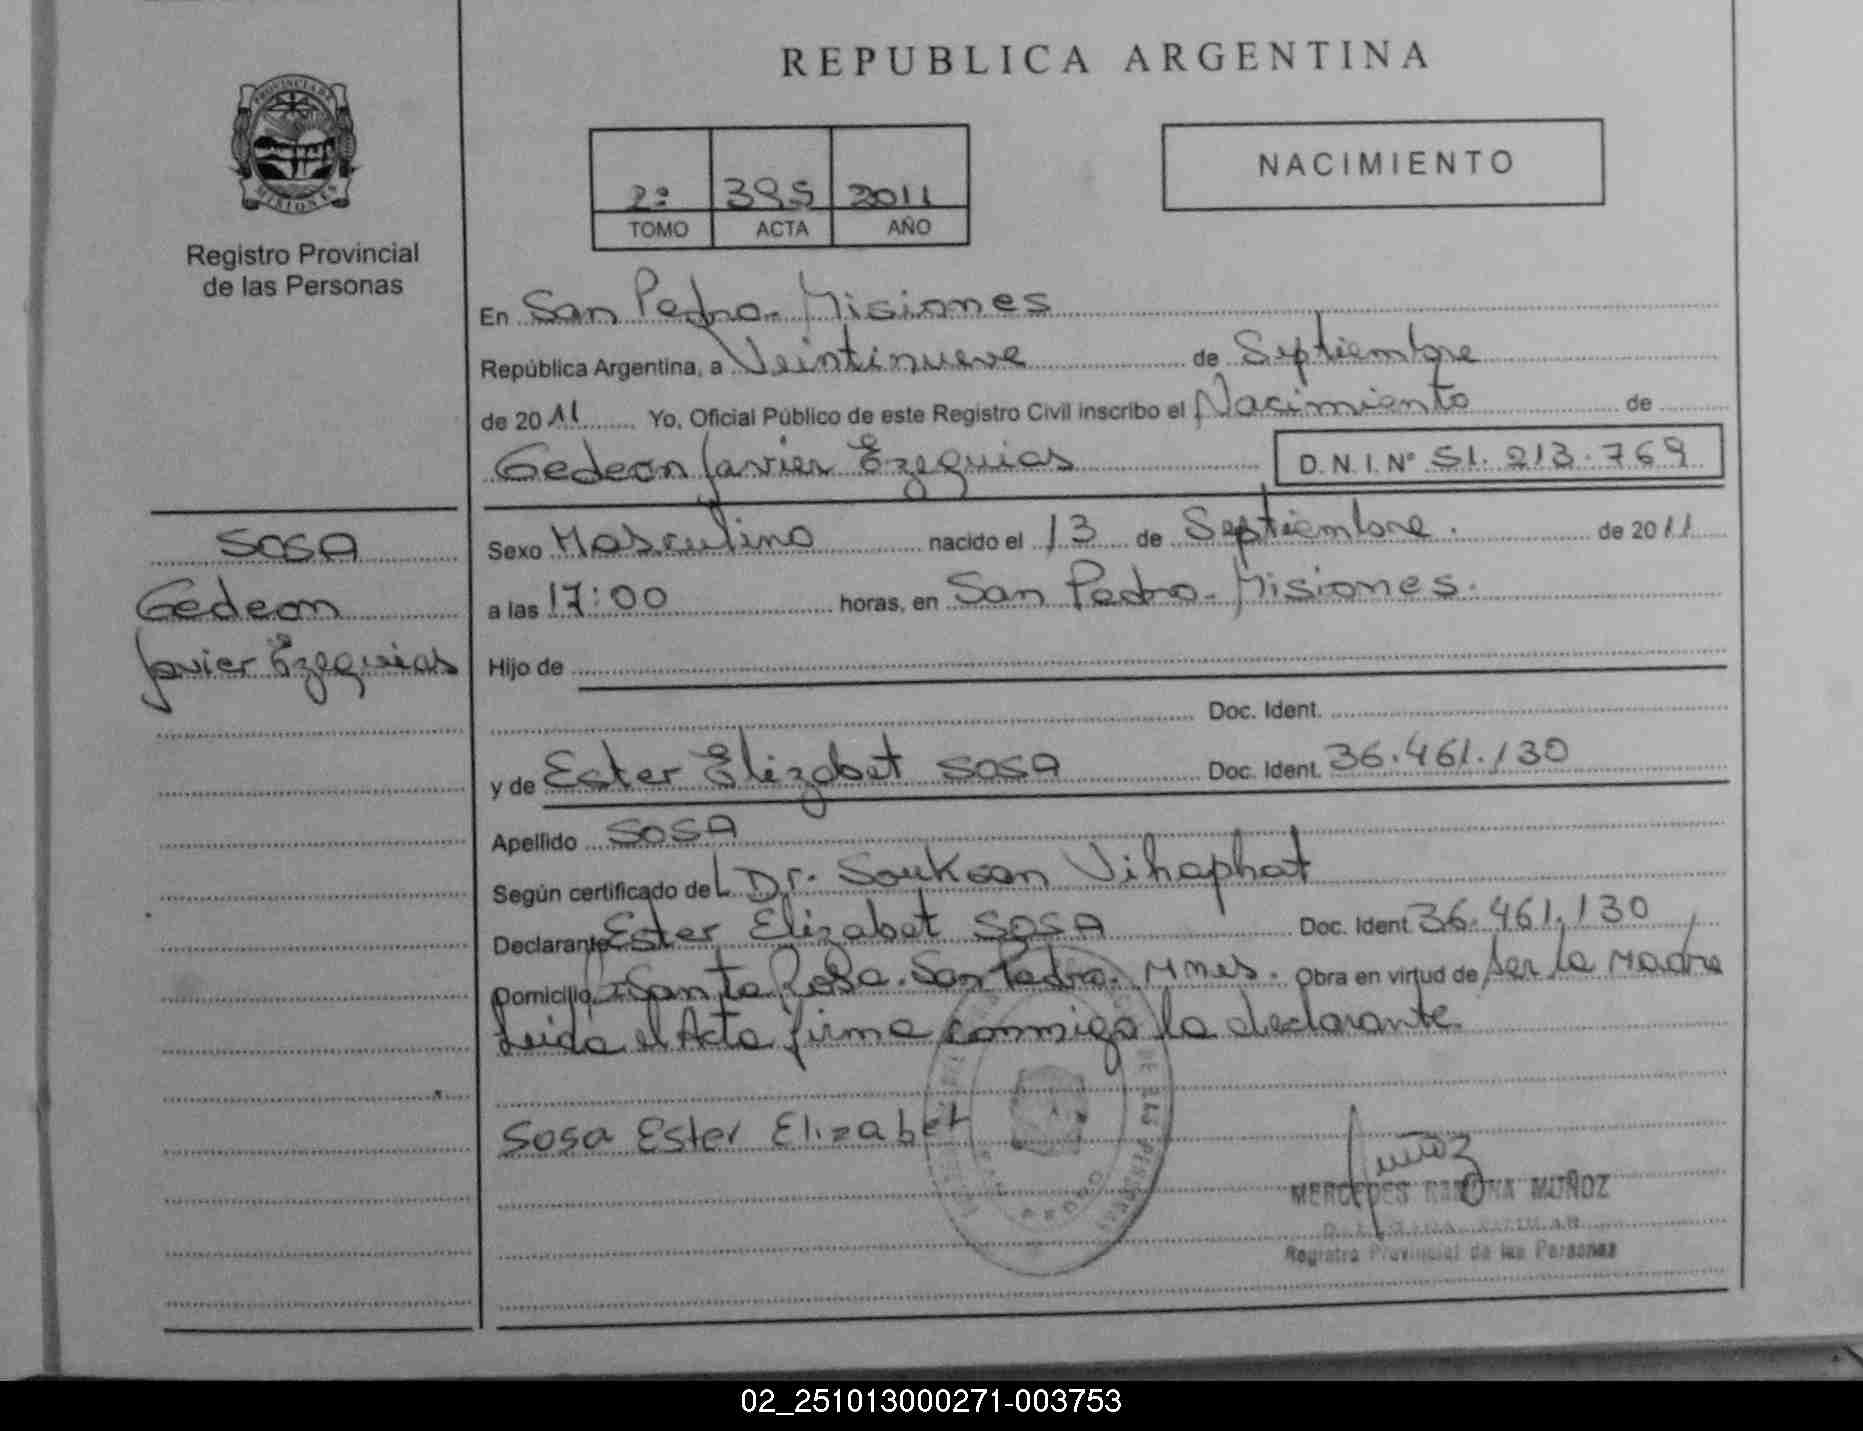 REPUBLICA ARGENTINA
PROVINCIA DE
MISIONES
Registro Provincial
de las Personas
2º 395 2011
TOMO ACTA AÑO
NACIMIENTO
En San Pedro - Misiones
República Argentina, a Veintinueve de Septiembre
de 2011 Yo, Oficial Público de este Registro Civil inscribo el Nacimiento de
Gedeon Javier Ezequias D.N.I. Nº 51.213.769
SOSA
Gedeon
Javier Ezequias
Sexo Masculino nacido el 13 de Septiembre. de 2011
a las 17:00 horas, en San Pedro - Misiones.
Hijo de
Doc. Ident.
y de Ester Elizabet SOSA Doc. Ident. 36.461.130
Apellido SOSA
Según certificado del Dr. Soukoan Vihaphat
Declarante Ester Elizabet SOSA Doc. Ident 36.461.130
Domicilio Santa Rosa. San Pedro. Mnes. Obra en virtud de Ser la Madre
Leida el Acta firma conmigo la declarante.
Sosa Ester Elizabet
Muñoz
MERCEDES RAMONA MUÑOZ
Registro Provincial de las Personas
02_251013000271-003753